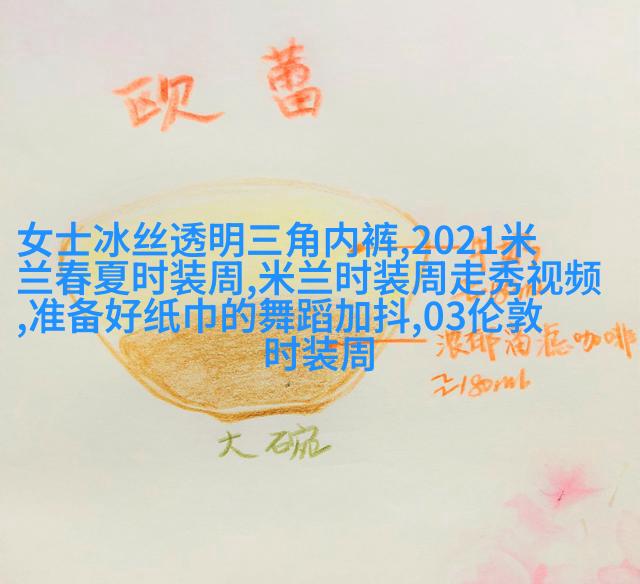 欧蕾
女士冰丝透明三角内裤,2021米
兰春夏时装周,米兰时装周走秀视频
,准备好纸巾的舞蹈加抖,03伦敦
时装周
浓郁滴滤咖啡
≈180ml
大碗